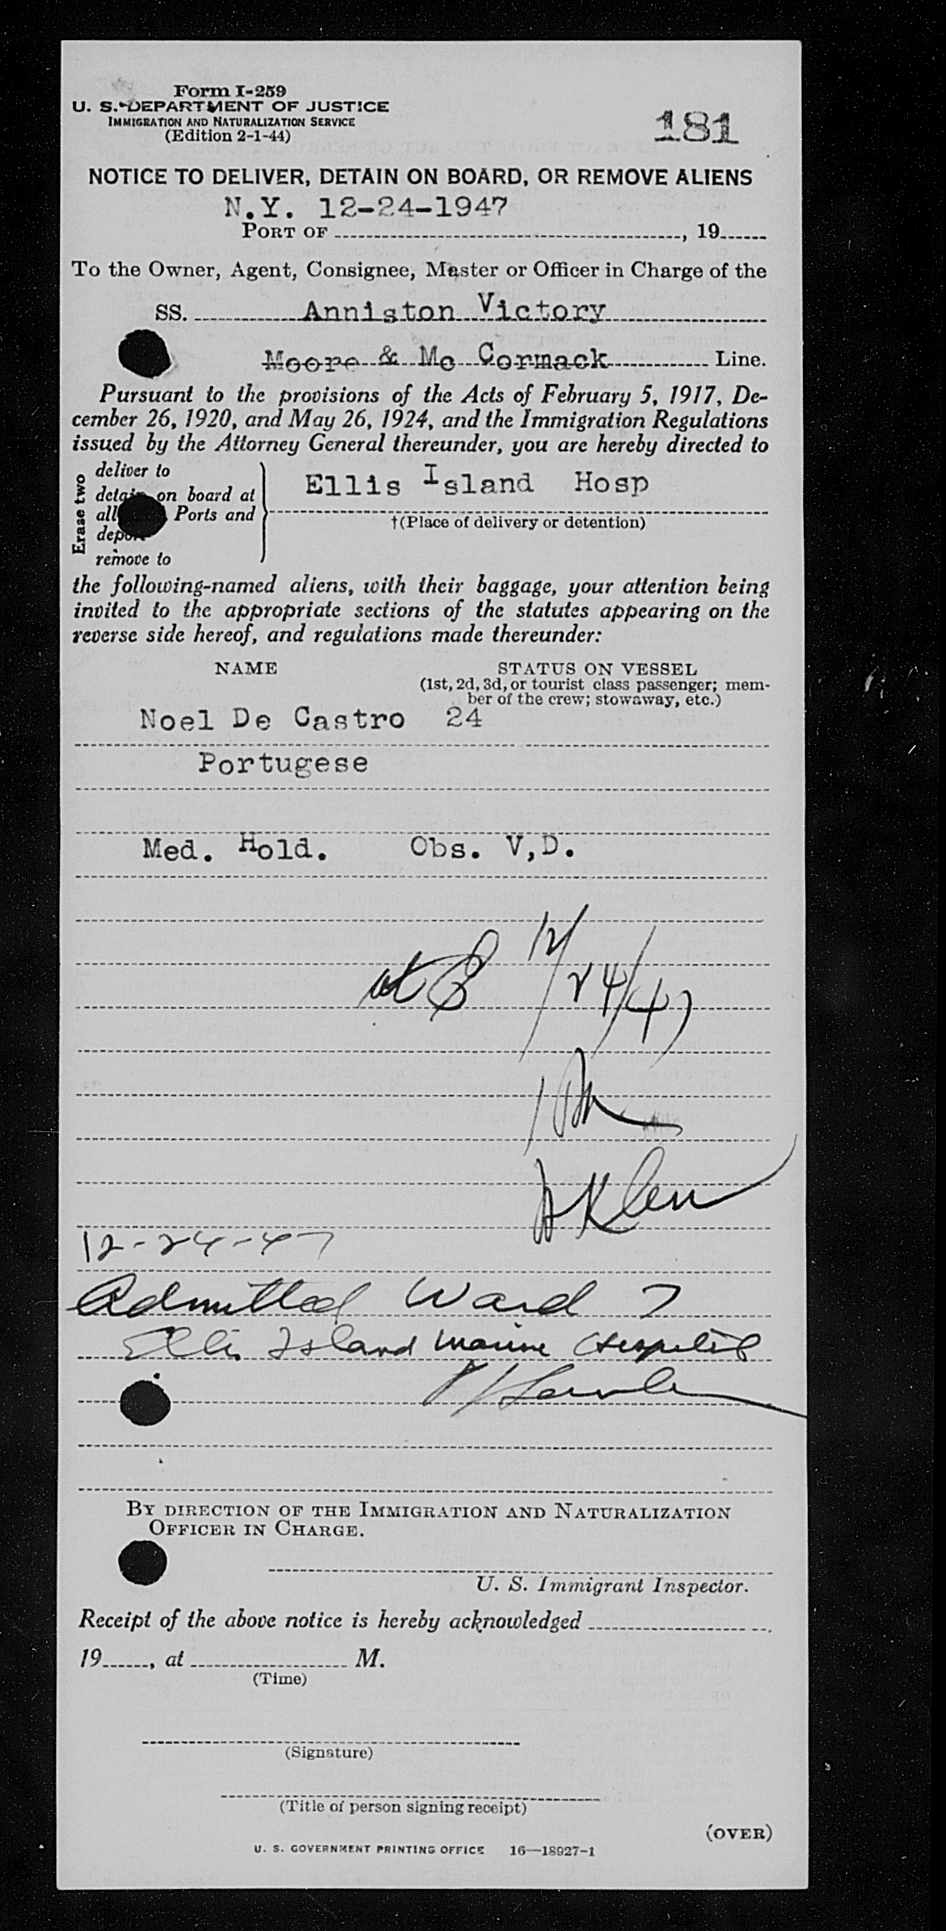 Form I-259
U. S. DEPARTMENT OF JUSTICE
IMMIGRATION AND NATURALIZATION SERVICE
(Edition 2-1-44)
181
NOTICE TO DELIVER, DETAIN ON BOARD, OR REMOVE ALIENS
N.Y. 12-24-1947
PORT OF , 19
To the Owner, Agent, Consignee, Master or Officer in Charge of the
SS. Anniston Victory
Moore & Mc Cormack Line.
Pursuant to the provisions of the Acts of February 5, 1917, De-
cember 26, 1920, and May 26, 1924, and the Immigration Regulations
issued by the Attorney General thereunder, you are hereby directed to
Erase two
deliver to
detain on board at
all Ports and
deport
remove to
Ellis Island Hosp
†(Place of delivery or detention)
the following-named aliens, with their baggage, your attention being
invited to the appropriate sections of the statutes appearing on the
reverse side hereof, and regulations made thereunder:
NAME STATUS ON VESSEL
(1st, 2d, 3d, or tourist class passenger; mem-
ber of the crew; stowaway, etc.)
Noel De Castro 24
Portugese
Med. Hold. Obs. V,D.
12/24/47
12-24-47
Admitted Ward 7
Ellis Island Marine Hospital
BY DIRECTION OF THE IMMIGRATION AND NATURALIZATION
OFFICER IN CHARGE.
U. S. Immigrant Inspector.
Receipt of the above notice is hereby acknowledged
19 , at M.
(Time)
(Signature)
(Title of person signing receipt)
(OVER)
U. S. GOVERNMENT PRINTING OFFICE 16—18927-1